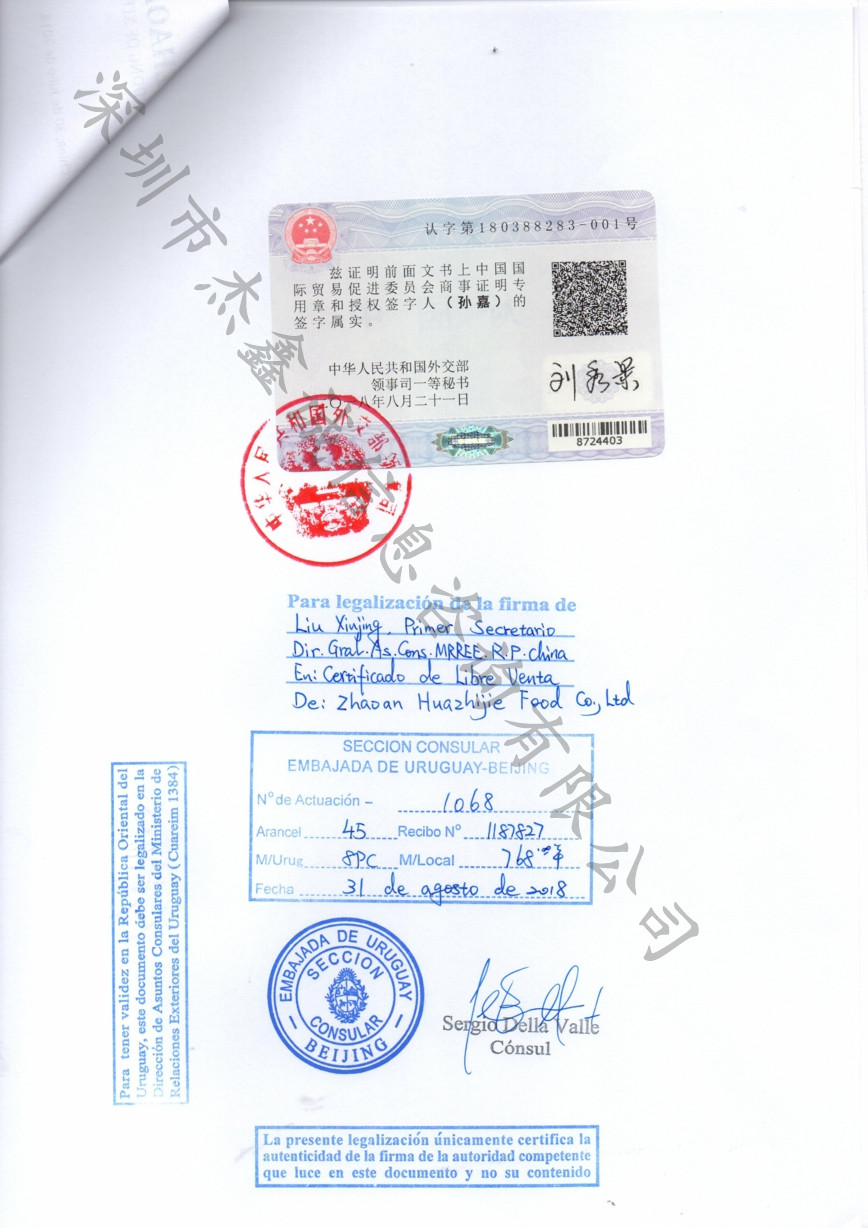 认字第180388283-001号
兹证明前面文书上中国国
际贸易促进委员会商事证明专
用章和授权签字人（孙嘉）的
签字属实。
中华人民共和国外交部
领事司一等秘书
〇一八年八月二十一日
8724403
中华人民共和国外交部领事司
深圳市杰鑫诚信息咨询有限公司
Para legalización de la firma de
Liu Xinjing, Primer Secretario
Dir. Gral. As. Cons. MRREE. R.P. China
En: Certificado de Libre Venta
De: Zhaoan Huazhijie Food Co., Ltd
SECCION CONSULAR
EMBAJADA DE URUGUAY-BEIJING
Nº de Actuación – 1068
Arancel 45 Recibo Nº 1187827
M/Urug 8PC M/Local 768
Fecha 31 de agosto de 2018
Para tener validez en la República Oriental del
Uruguay, este documento debe ser legalizado en la
Dirección de Asuntos Consulares del Ministerio de
Relaciones Exteriores del Uruguay (Cuareim 1384)
EMBAJADA DE URUGUAY
SECCION
CONSULAR
BEIJING
Sergio Della Valle
Cónsul
La presente legalización únicamente certifica la
autenticidad de la firma de la autoridad competente
que luce en este documento y no su contenido